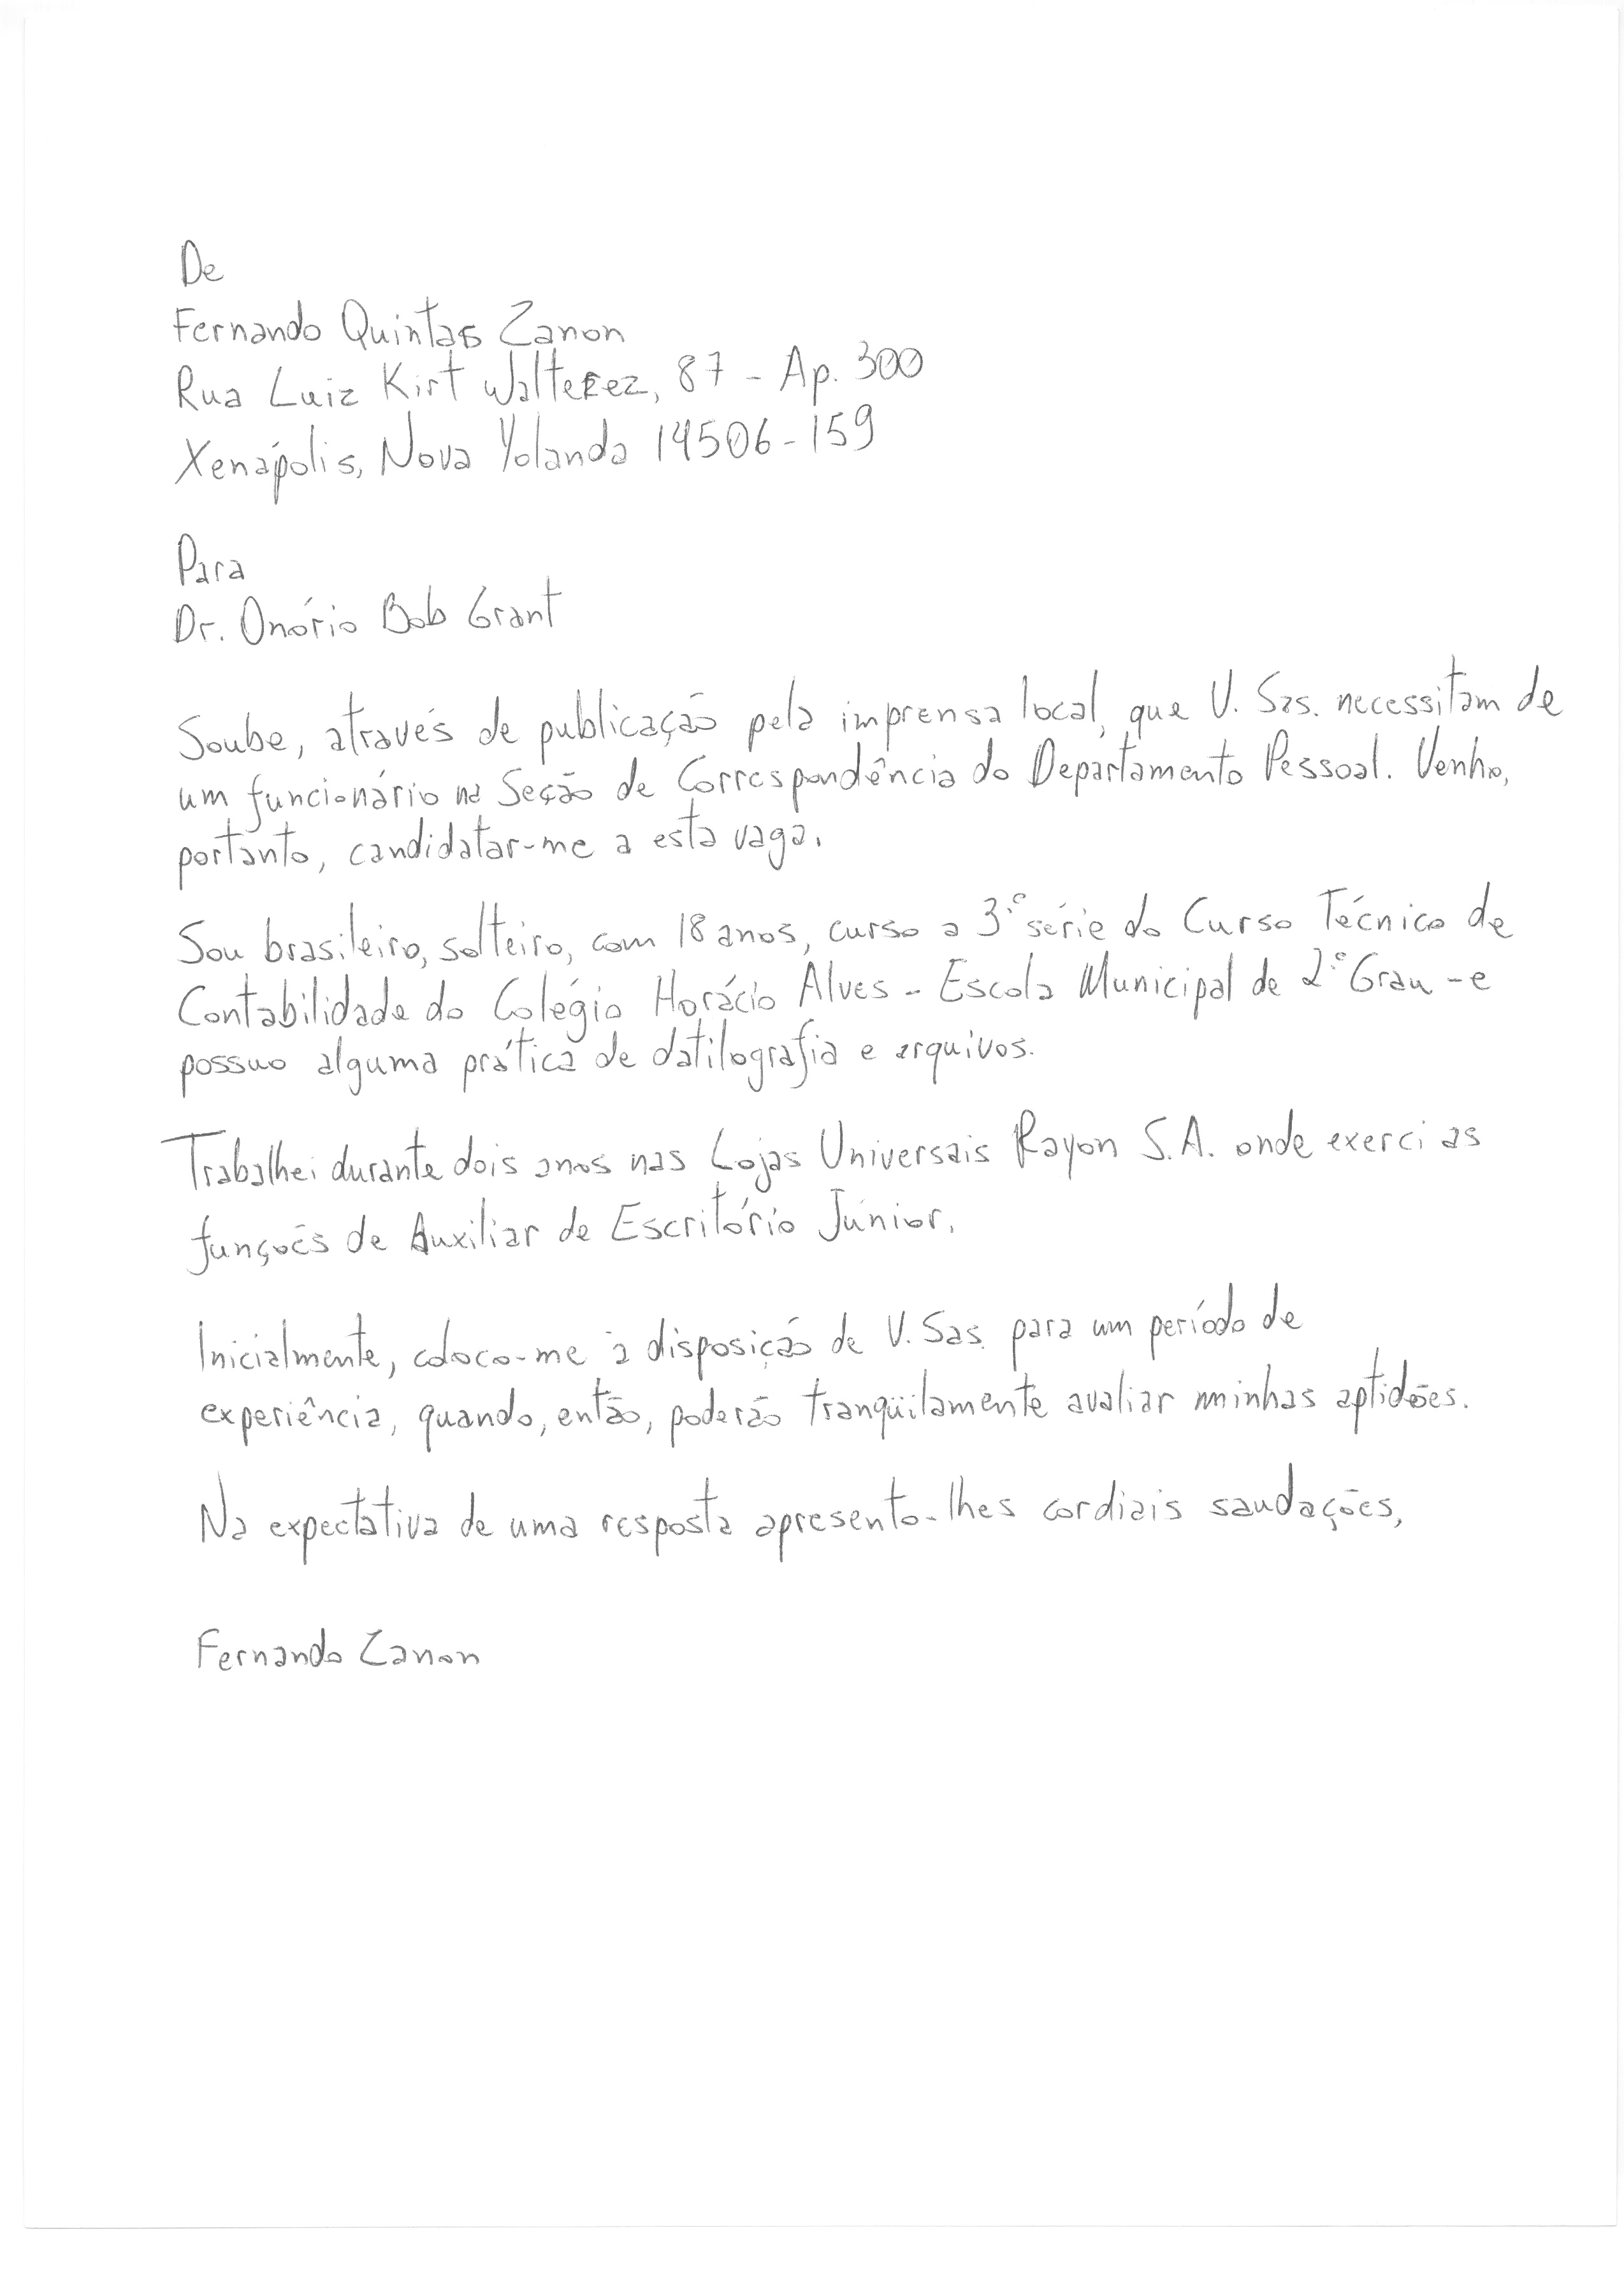 De
Fernando Quintas Zanon
Rua Luiz Kirt Walterez, 87 - Ap. 300
Xenápolis, Nova Yolanda 14506-159
Para
Dr. Onório Bob Grant
Soube, através de publicação pela imprensa local, que V. Sas. necessitam de
um funcionário na Seção de Correspondência do Departamento Pessoal. Venho,
portanto, candidatar-me a esta vaga.
Sou brasileiro, solteiro, com 18 anos, curso a 3.ª série do Curso Técnico de
Contabilidade do Colégio Horácio Alves - Escola Municipal de 2.º Grau - e
possuo alguma prática de datilografia e arquivos.
Trabalhei durante dois anos nas Lojas Universais Rayon S.A. onde exerci as
funções de Auxiliar de Escritório Júnior.
Inicialmente, coloco-me à disposição de V. Sas. para um período de
experiência, quando, então, poderão tranqüilamente avaliar minhas aptidões.
Na expectativa de uma resposta apresento-lhes cordiais saudações,
Fernando Zanon